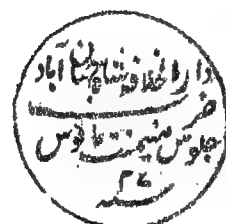 دارالخلافة شاهجهان آباد
ضرب
جلوس میمنت مانوس
سنه ٢٤